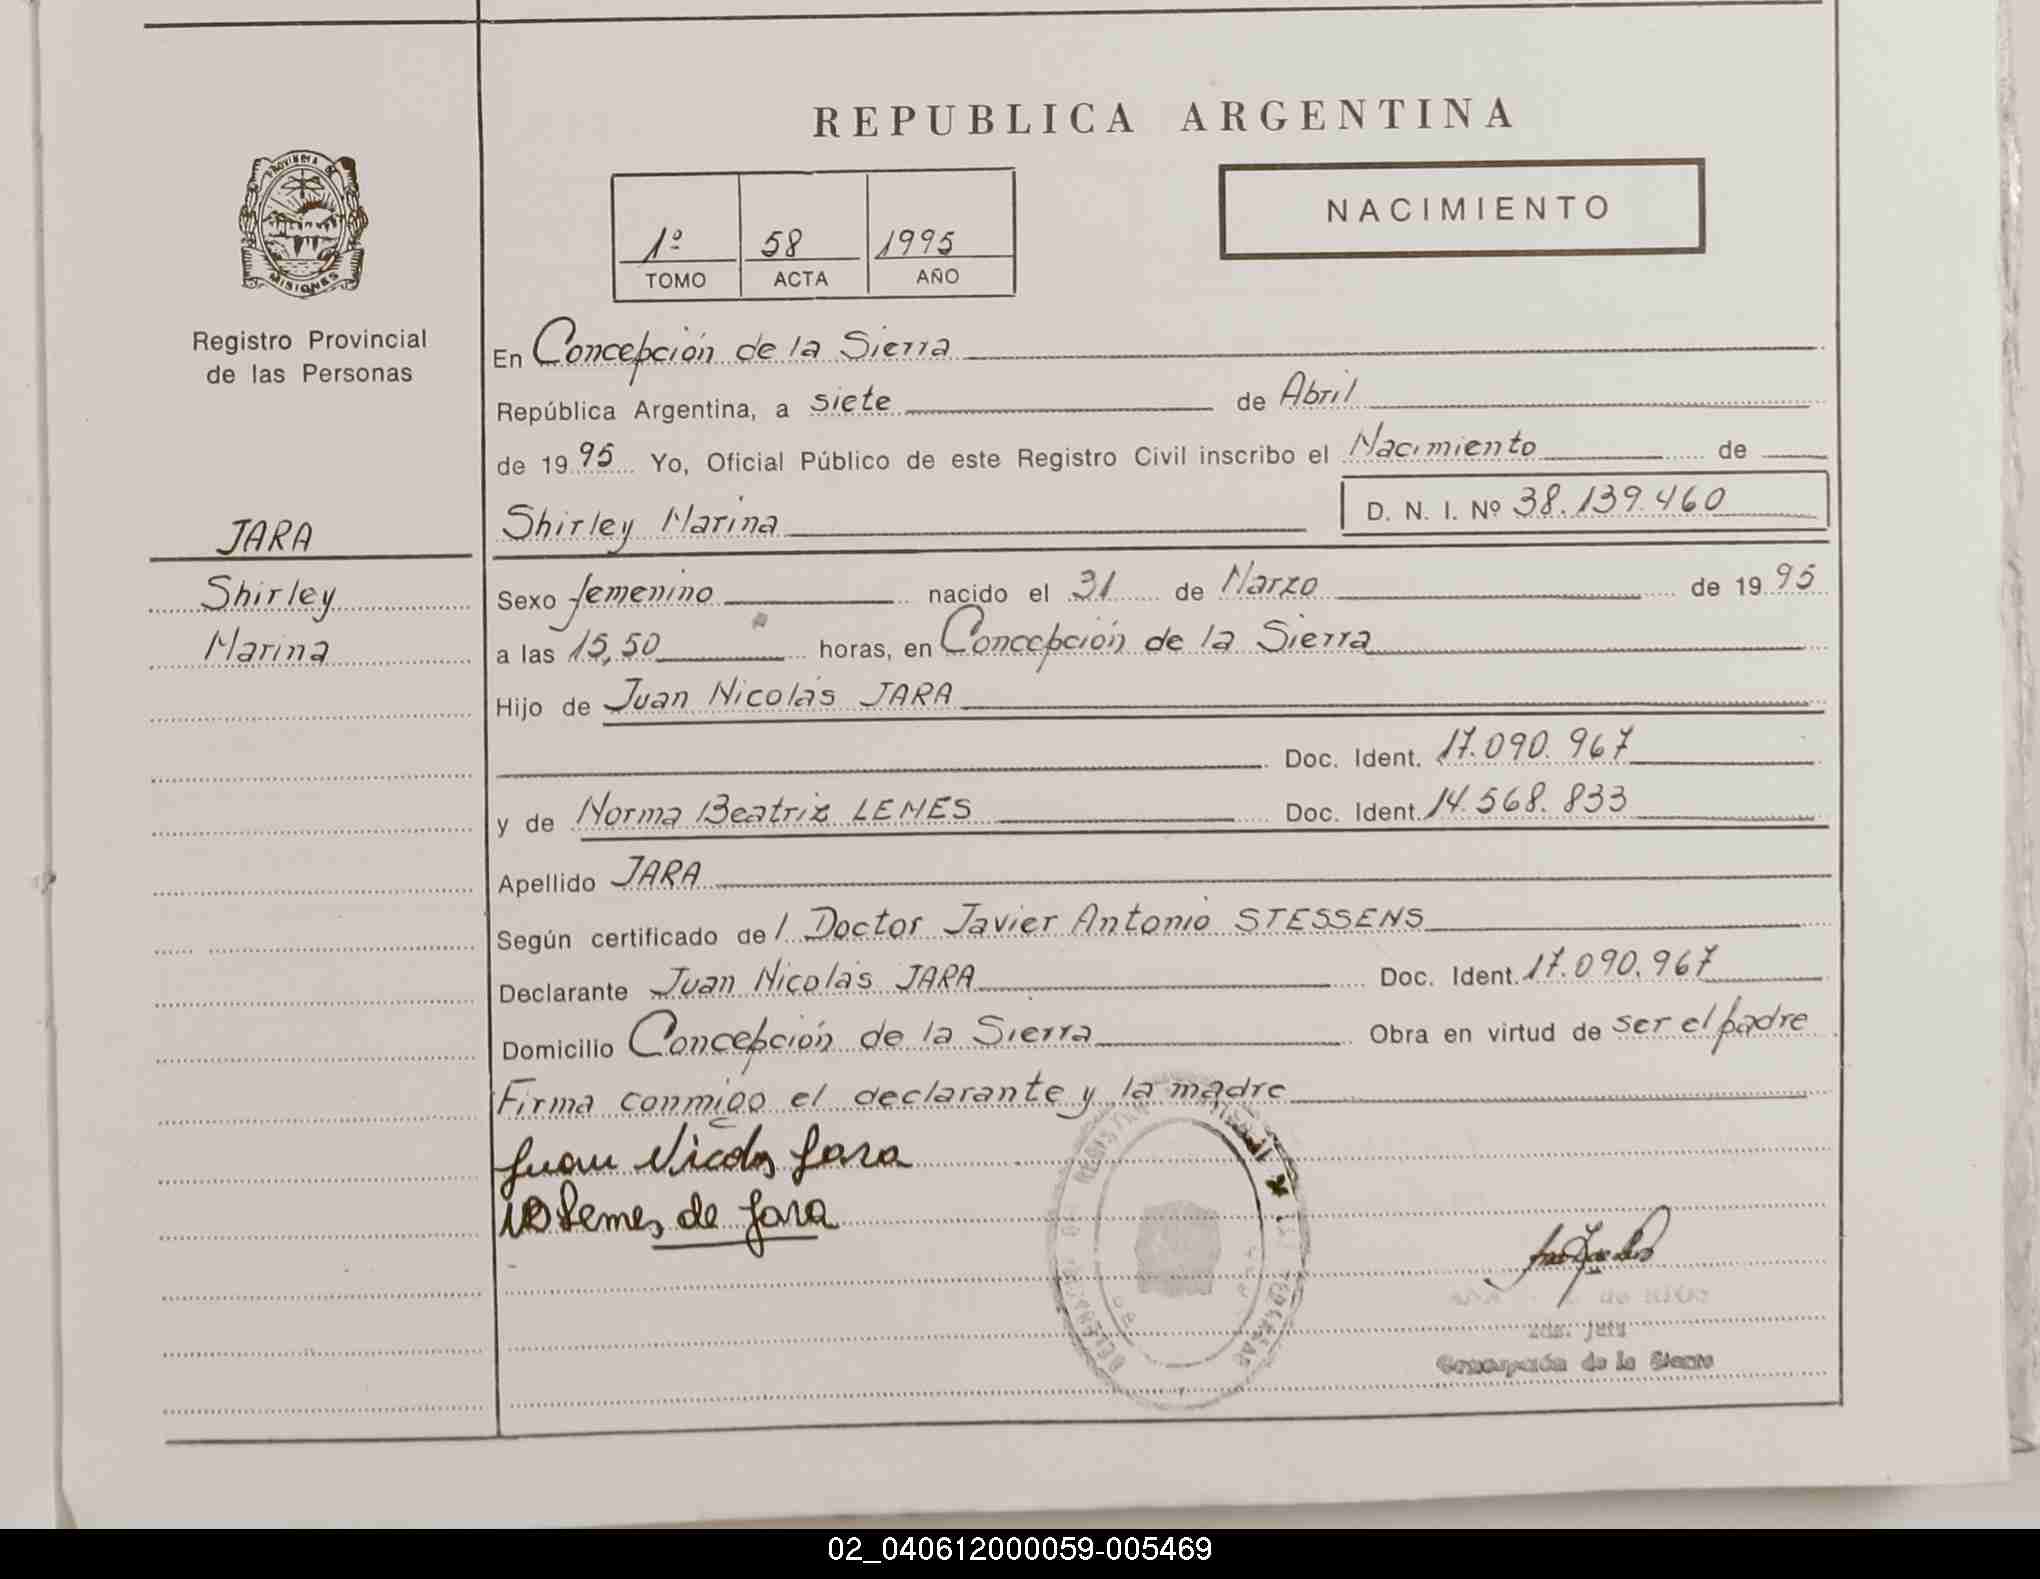 REPUBLICA ARGENTINA
PROVINCIA DE
MISIONES
Registro Provincial
de las Personas
1º 58 1995
TOMO ACTA AÑO
NACIMIENTO
JARA
Shirley
Marina
En Concepción de la Sierra
República Argentina, a siete de Abril
de 1995 Yo, Oficial Público de este Registro Civil inscribo el Nacimiento de
Shirley Marina D. N. I. Nº 38.139.460
Sexo femenino nacido el 31 de Marzo de 1995
a las 15,50 horas, en Concepción de la Sierra
Hijo de Juan Nicolás JARA
Doc. Ident. 17.090.967
y de Norma Beatriz LEMES Doc. Ident. 14.568.833
Apellido JARA
Según certificado del Doctor Javier Antonio STESSENS
Declarante Juan Nicolás JARA Doc. Ident. 17.090.967
Domicilio Concepción de la Sierra Obra en virtud de ser el padre
Firma conmigo el declarante y la madre
Juan Nicolas Jara
NB Lemes de Jara
Concepción de la Sierra
02_040612000059-005469